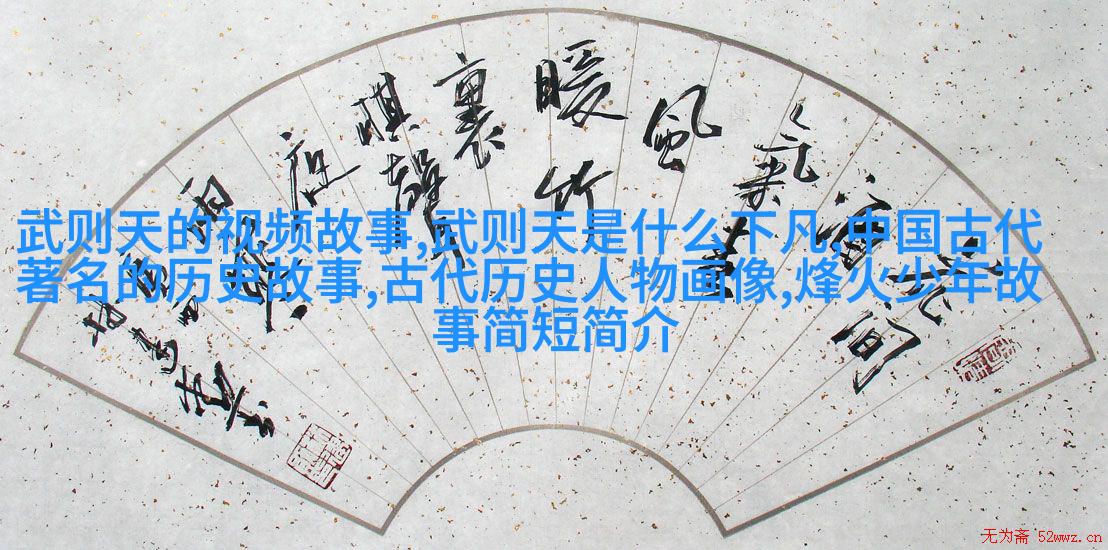 花間
酒
氣春
風
暖竹
裏
棋聲
夜
雨寒
武则天的视频故事,武则天是什么下凡,中国古代
著名的历史故事,古代历史人物画像,烽火少年故
事简短简介
无为斋 52wwz.cn